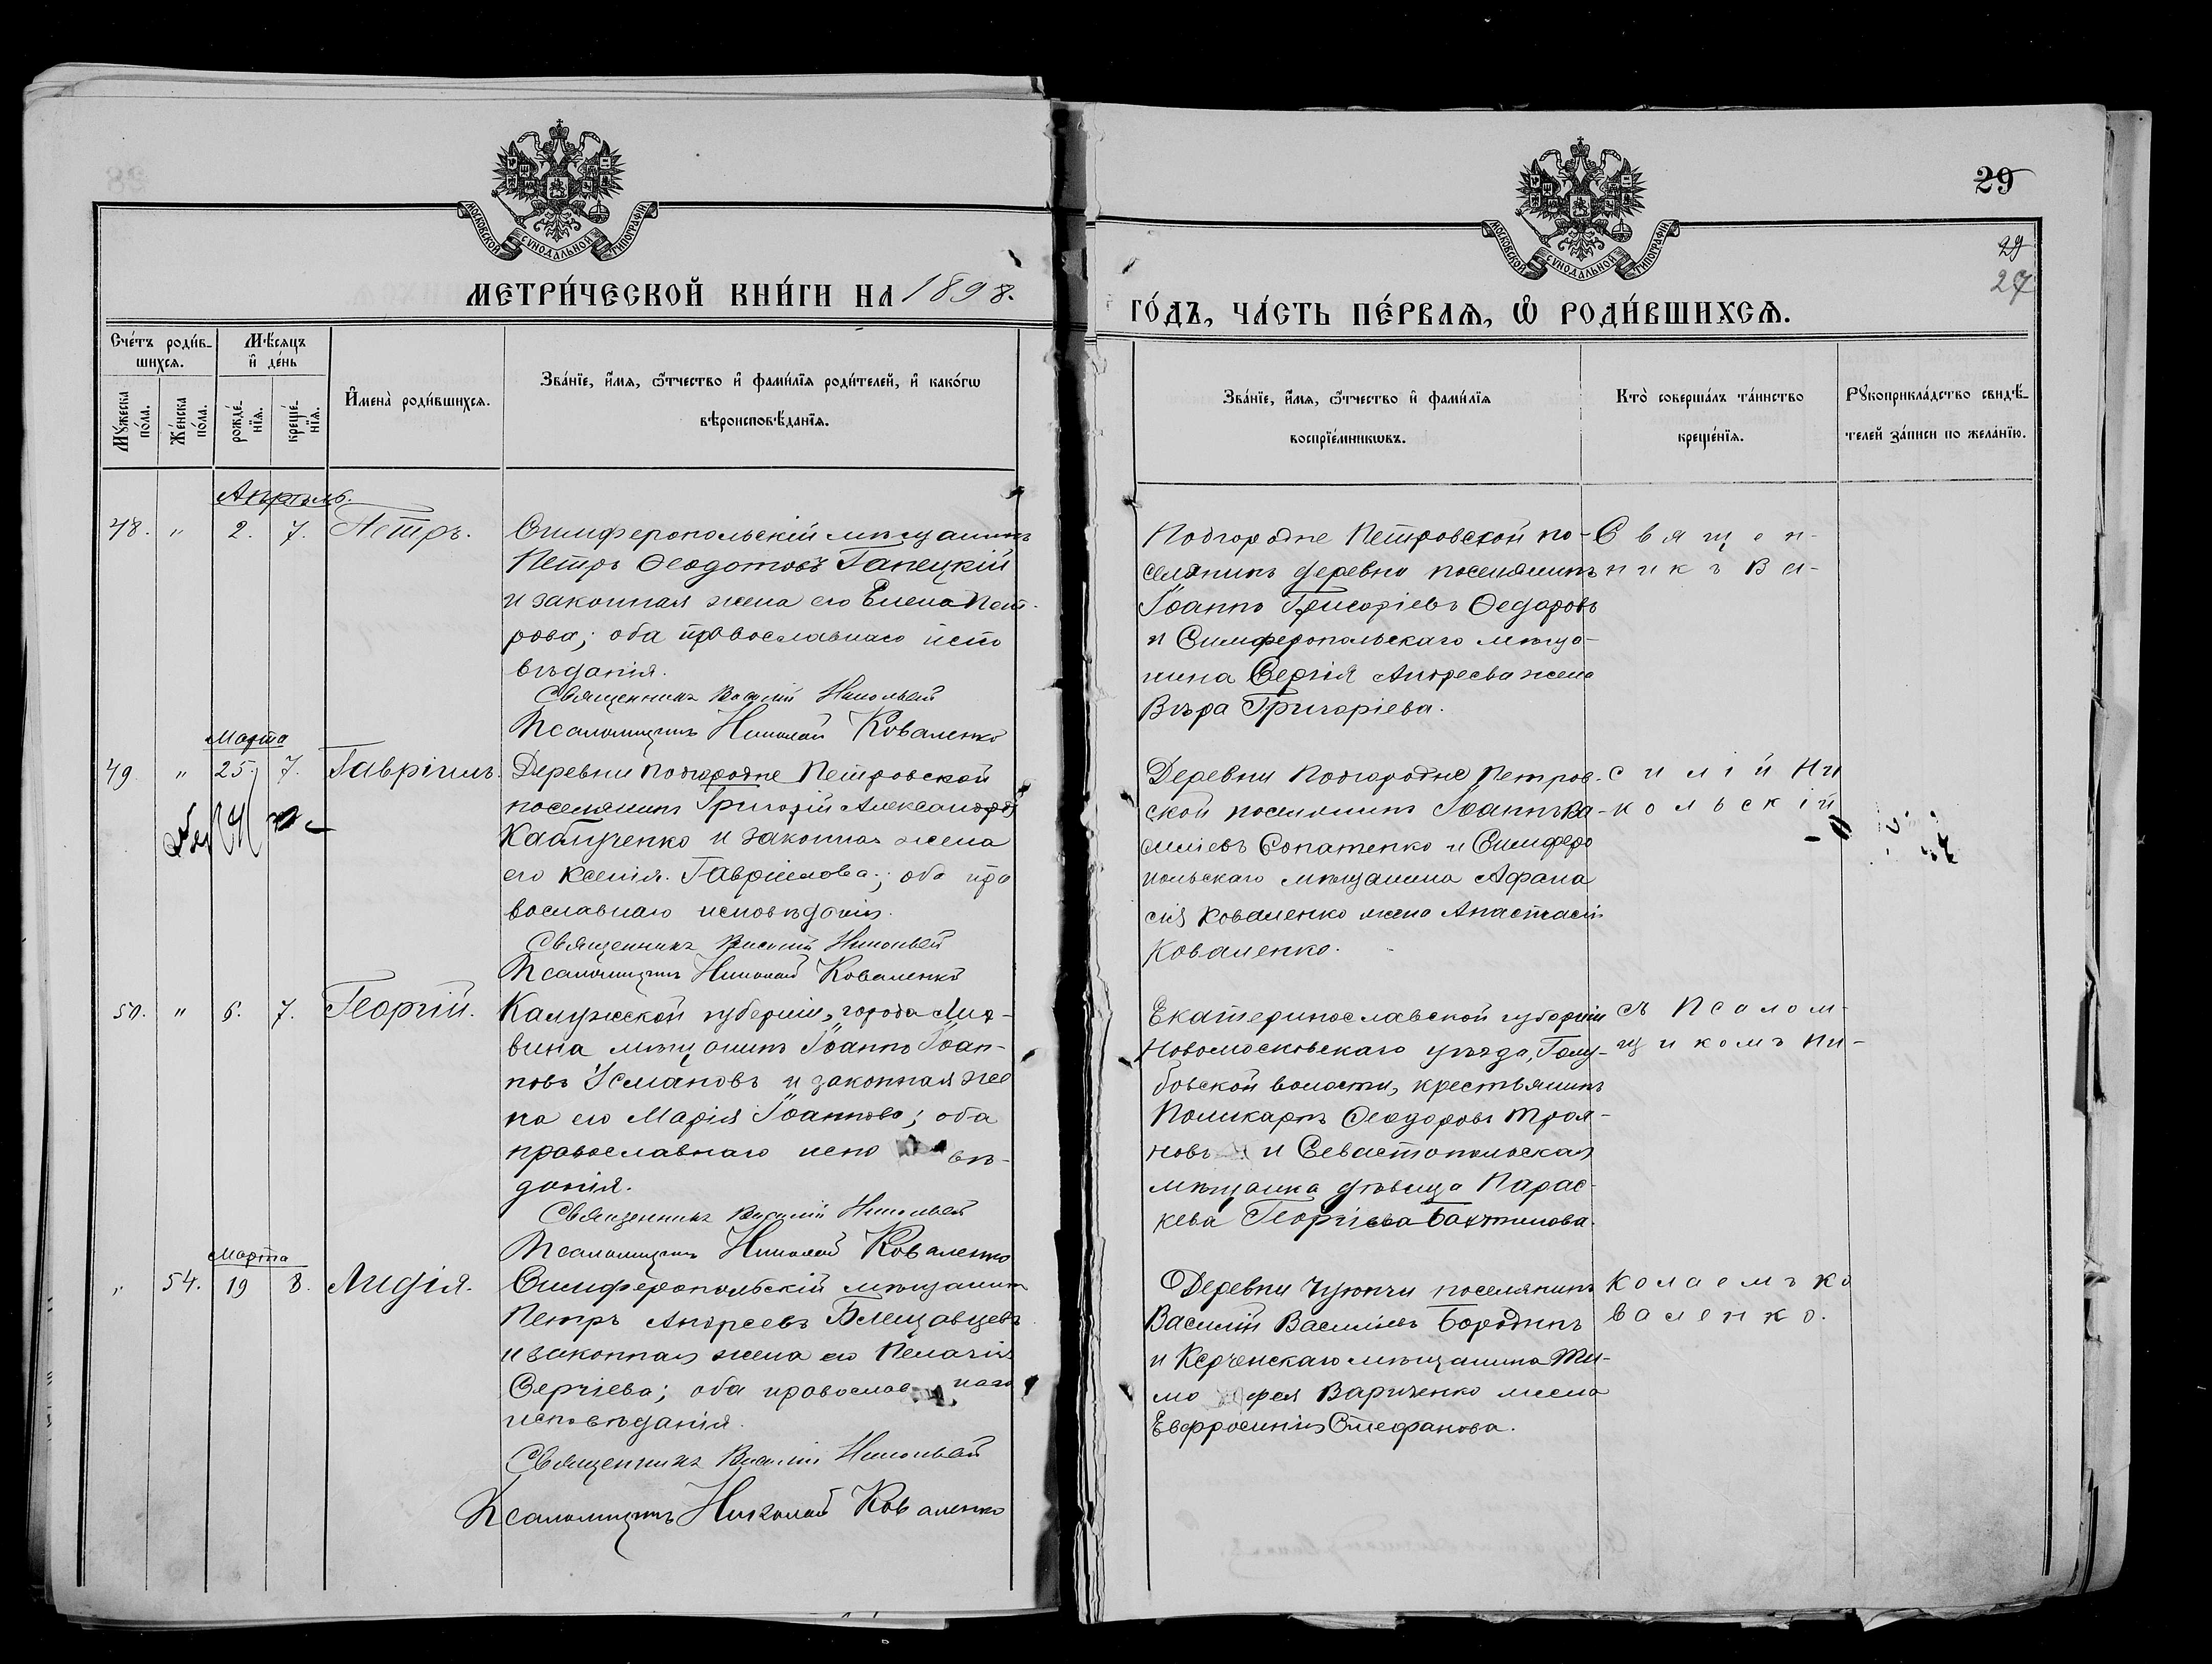 29
29
27
МОСКОВСКОЙ СѴНОДАЛЬНОЙ ТИПОГРАФІИ
МЕТРИ́ЧЕСКОЙ КНИ́ГИ НА 1898.
Сче́тъ роди́в-
шихся.
Мѣ́сяцъ
и҆ де́нь
Мꙋ́жеска
по́ла.
Же́нска
по́ла.
рожде́-
нїя.
креще́-
нїя.
И҆мена̀ роди́вшихся.
Зва́нїе, и҆́мя, ѻ҆́тчество и҆ фами́лїя роди́телей, и҆ како́гѡ
вѣроисповѣ́данїя.
Апрѣль.
48. " 2. 7. Петръ.
Симферопольскій мѣщанинъ
Петръ Ѳеодотовъ Ганецкій
и законная жена его Елена Пет-
рова; оба православнаго испо
вѣданія.
Священникъ Василій Никольскій
Псаломщикъ Николай Коваленко
Марта
49 " 25. 7. Гавріилъ.
Деревни Подгородне Петровской
поселянинъ Григорій Александровъ
Каблученко и законная жена
его Ксенія Гавріилова; оба пра
вославнаго исповѣданія.
Священникъ Василій Никольскій
Псаломщикъ Николай Коваленко
50. " 6. 7. Георгій.
Калужской губерніи, города Лих-
вина мѣщанинъ Іоаннъ Іоан-
новъ Усмановъ и законная же
на его Марія Іоаннова; оба
православнаго испо вѣ-
данія.
Священникъ Василій Никольскій
Псаломщикъ Николай Коваленко
Марта
" 54. 19 8. Лидія.
Симферопольскій мѣщанинъ
Петръ Андреевъ Блещавцевъ
и законная жена его Пелагія
Сергіева; оба православ наго
исповѣданія.
Священникъ Василій Никольскій
Псаломщикъ Николай Коваленко
МОСКОВСКОЙ СѴНОДАЛЬНОЙ ТИПОГРАФІИ
ГО́ДЪ, ЧА́СТЬ ПЕ́РВАѦ, Ѽ РОДИ́ВШИХСѦ.
Зва́нїе, и҆́мя, ѻ҆́тчество и҆ фами́лїя
воспрїе́мникѡвъ.
Кто̀ соверша́лъ та́инство
креще́нїя.
Рꙋкоприкла́дство свидѣ́-
телей за́писи по жела́нїю.
Подгородне Петровской по-
селянинъ деревни поселянинъ
Іоаннъ Григоріевъ Ѳедоровъ
и Симферопольскаго мѣща-
нина Сергія Андреева жена
Вѣра Григоріева.
Деревни Подгородне Петров-
ской поселянинъ Іоаннъ Ва-
силіевъ Сопатенко и Симферо
польскаго мѣщанина Афана
сія Коваленко жена Анастасія
Коваленко.
Екатеринославской губерніи
Новомосковскаго уѣзда, Голу-
бовской волости, крестьянинъ
Поликарпъ Ѳеодоровъ Троя-
новъ и Севастопольская
мѣщанка дѣвица Парас-
кева Георгіева Бахтинова.
Деревни Чуюнчи поселянинъ
Василій Васильевъ Бородинъ
и Керченскаго мѣщанина Ти-
мо фея Вариченко жена
Евфросинія Стефанова.
Священ-
никъ Ва-
силій Ни
кольскій
съ Псалом-
щикомъ Ни-
колаемъ Ко
валенко.